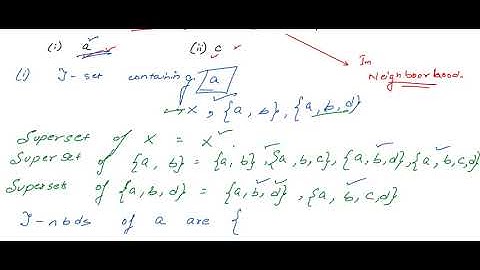 (i) a (ii) c
In
Neighbourhood.
(i) J-set containing a
X, {a, b}, {a, b, d}
Superset of X = X
Superset of {a, b} = {a, b}, {a, b, c}, {a, b, d}, {a, b, c, d}
Superset of {a, b, d} = {a, b, d}, {a, b, c, d}
J-nbds of a are {